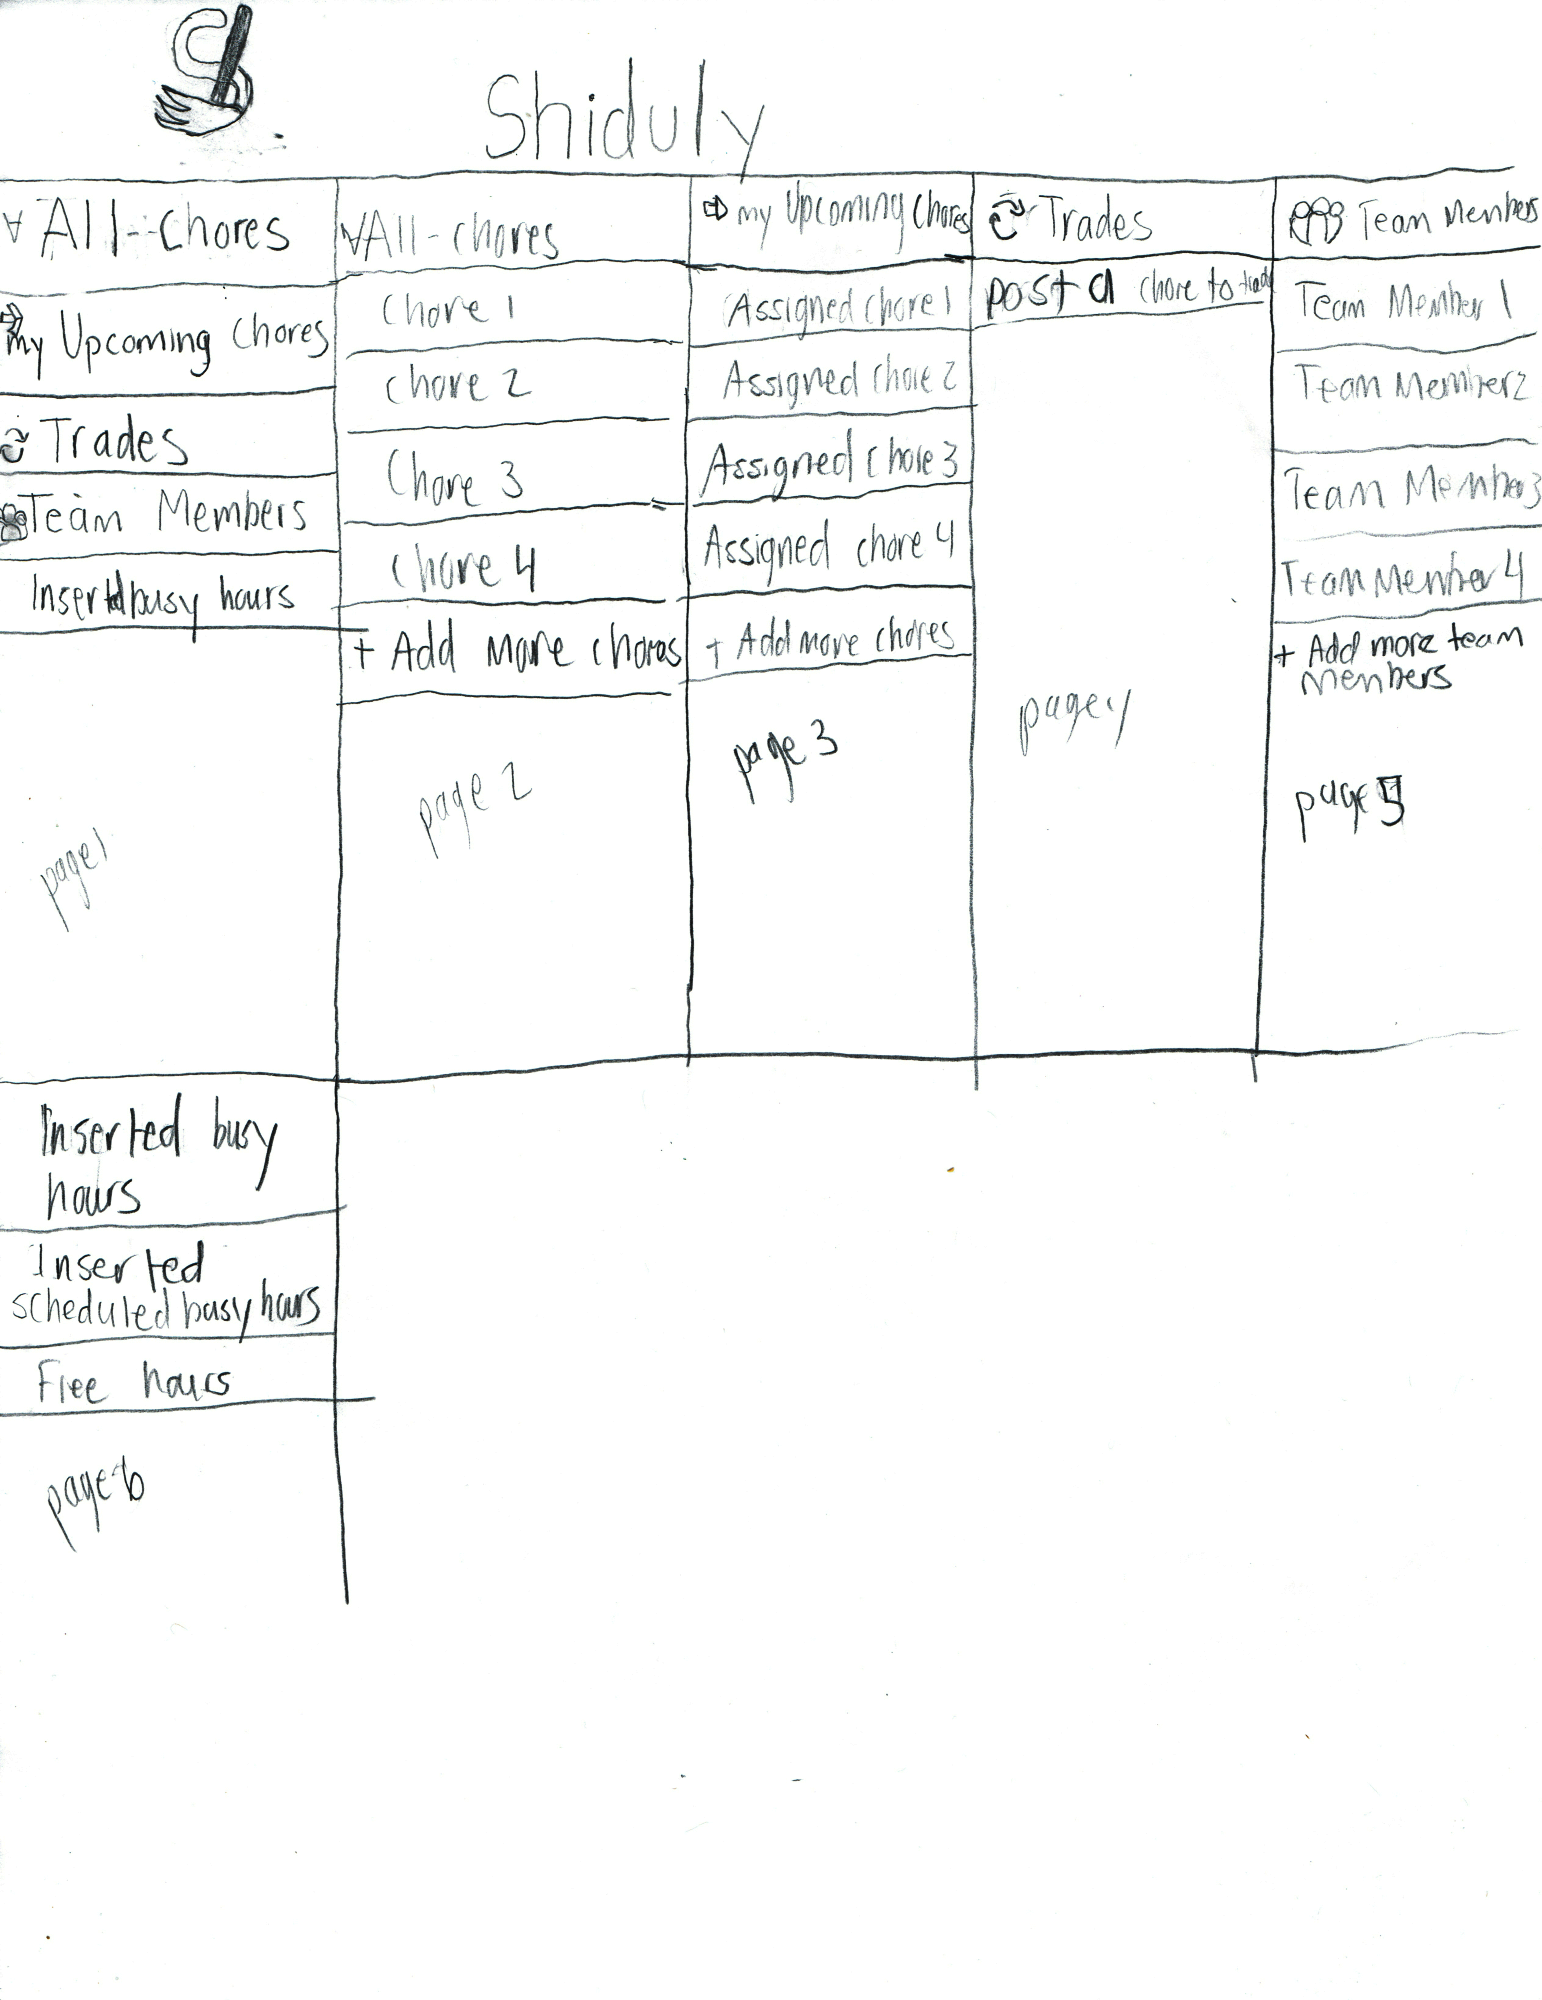 Shiduly
∀ All-chores
my Upcoming Chores
Trades
Team Members
Inserted busy hours
page 1
∀All-chores
Chore 1
chore 2
Chore 3
chore 4
+ Add more chores
page 2
my Upcoming Chores
Assigned chore 1
Assigned chore 2
Assigned chore 3
Assigned chore 4
+ Add more chores
page 3
Trades
post a chore to trade
page 4
Team Members
Team Member 1
Team Member 2
Team Member 3
Team Member 4
+ Add more team
members
page 5
Inserted busy
hours
Inserted
scheduled busy hours
Free hours
page 6